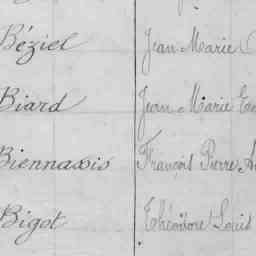 Béziel Jean Marie
Biard Jean Marie
Biennassis François Pierre
Bigot Théodore Louis